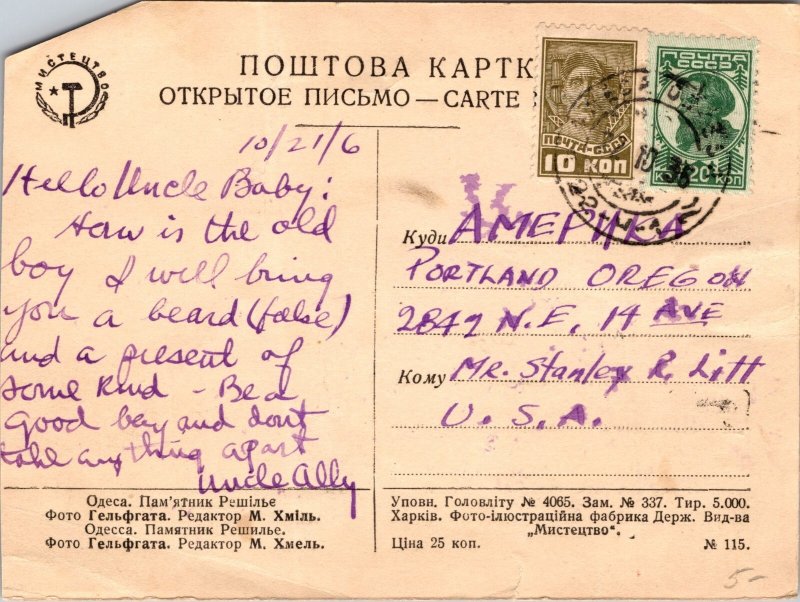 МИСТЕЦТВО
ПОШТОВА КАРТК
ОТКРЫТОЕ ПИСЬМО — CARTE
ПОЧТА-СССР
10 КОП
ПОЧТА
СССР
20 КОП
10/21/6
Hello Uncle Baby:
How is the old
boy I will bring
you a beard (false)
and a present of
some kind - Be a
good boy and dont
take any thing apart
Uncle Ally
Куди АМЕРИКА
PORTLAND OREGON
2847 N.E. 14 AVE
Кому Mr. Stanley R. Litt
U.S.A.
Одеса. Пам'ятник Решільє
Фото Гельфгата. Редактор М. Хміль.
Одесса. Памятник Решилье.
Фото Гельфгата. Редактор М. Хмель.
Уповн. Головліту № 4065. Зам. № 337. Тир. 5.000.
Харків. Фото-ілюстраційна фабрика Держ. Вид-ва
„Мистецтво“.
Ціна 25 коп. № 115.
5-